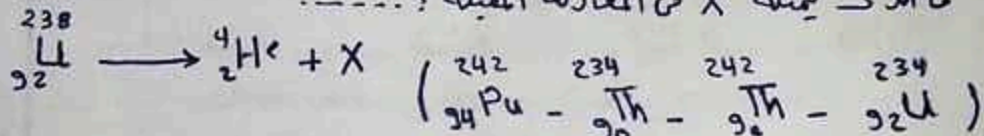 ²³⁸₉₂U ⟶ ⁴₂He + X
( ²⁴²₉₄Pu - ²³⁴₉₀Th - ²⁴²₉₀Th - ²³⁴₉₂U )